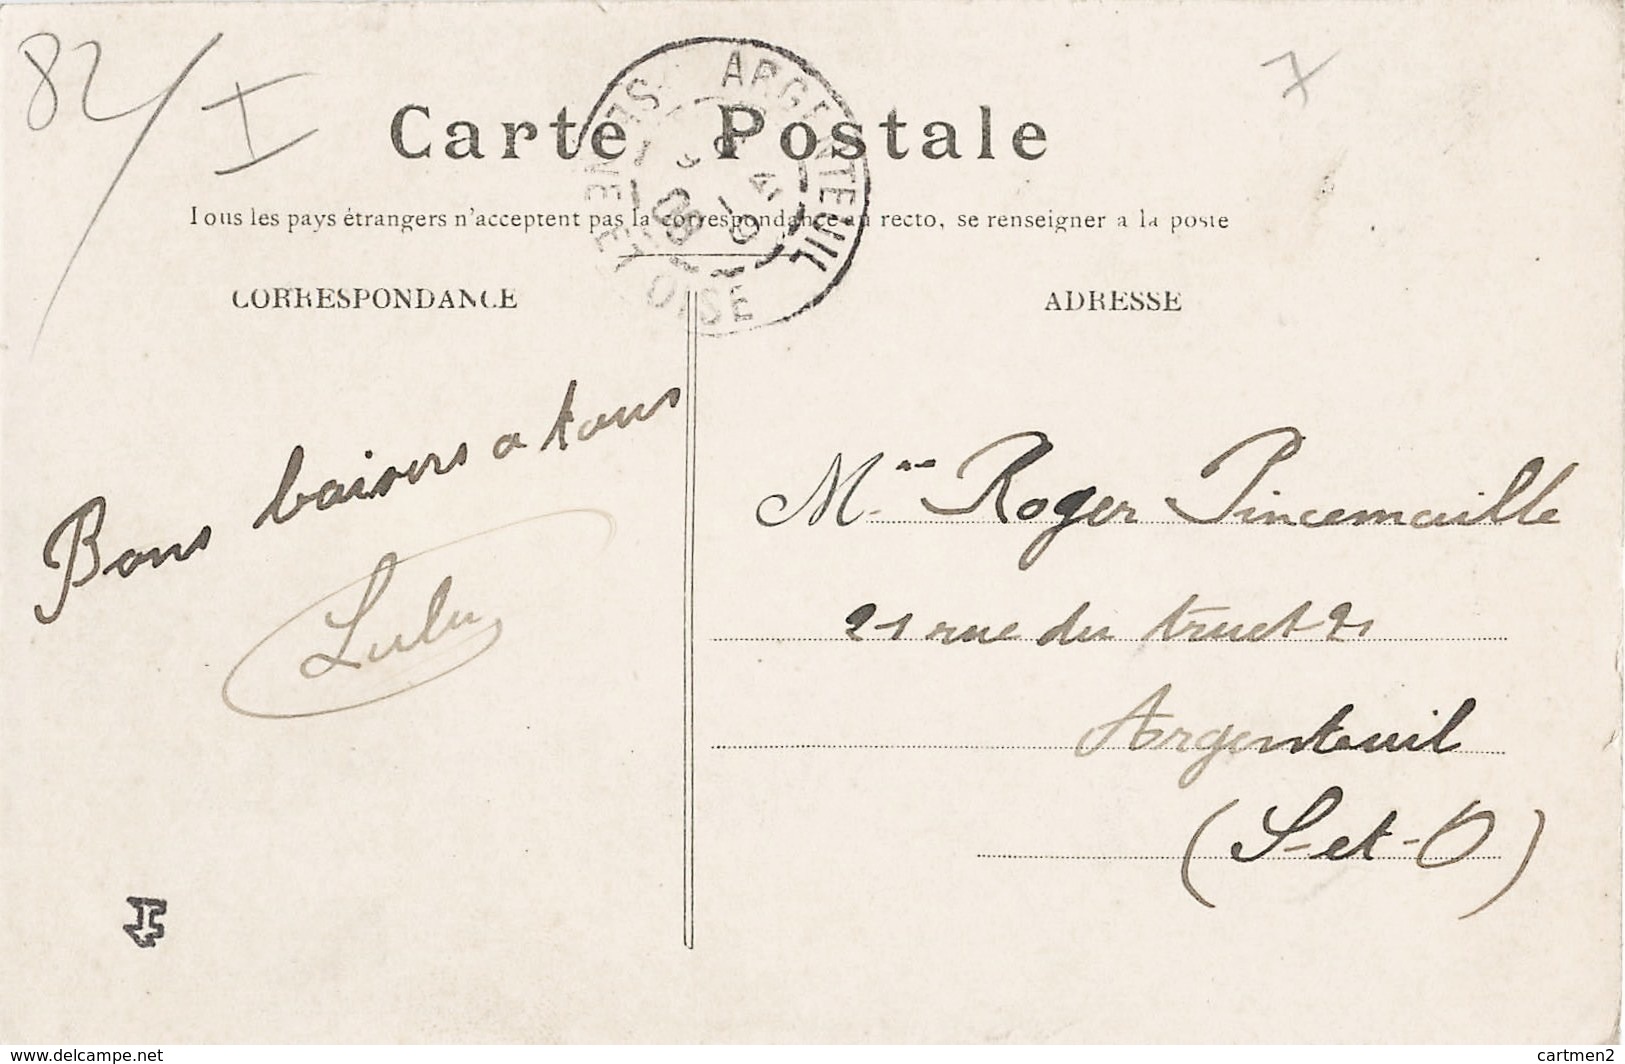 82/
I
7
Carte Postale
Tous les pays étrangers n'acceptent pas la correspondance au recto, se renseigner a la poste
ARGENTEUIL
SEINE ET OISE
09
CORRESPONDANCE
ADRESSE
Bons baisers a tous
Lulu
Roger Pincemaille
21 rue du truct 21
Argenteuil
(S-et-O)
www.delcampe.net
cartmen2